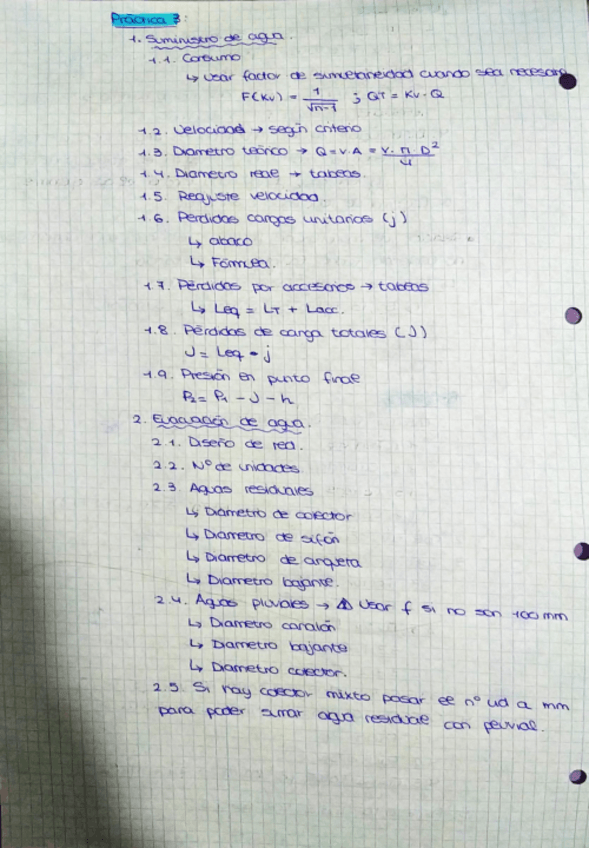 Práctica 3:
1. Suministro de agua.
1.1. Consumo
↳ Usar factor de simultaneidad cuando sea necesario
F(Kv) = 1/√n-1 ; QT = Kv · Q
1.2. Velocidad → según criterio
1.3. Diametro teórico → Q = v · A = v · π · D²/4
1.4. Diametro real → tablas.
1.5. Reajuste velocidad.
1.6. Perdidas cargas unitarias (j)
↳ abaco
↳ Fórmula.
1.7. Pérdidas por accesorios → tablas
↳ Leq = LT + Lacc.
1.8. Pérdidas de carga totales (J)
J = Leq · j
1.9. Presión en punto final
P2 = P1 - J - h
2. Evacuación de agua.
2.1. Diseño de red.
2.2. Nº de unidades
2.3 Aguas residuales
↳ Diámetro de colector
↳ Diametro de sifón
↳ Diametro de arqueta
↳ Diametro bajante.
2.4. Aguas pluviales → ⚠ Usar f si no son 100 mm
↳ Diametro canalón
↳ Diametro bajante
↳ Diametro colector.
2.5. Si hay colector mixto pasar el nº ud a mm
para poder sumar agua residual con pluvial.